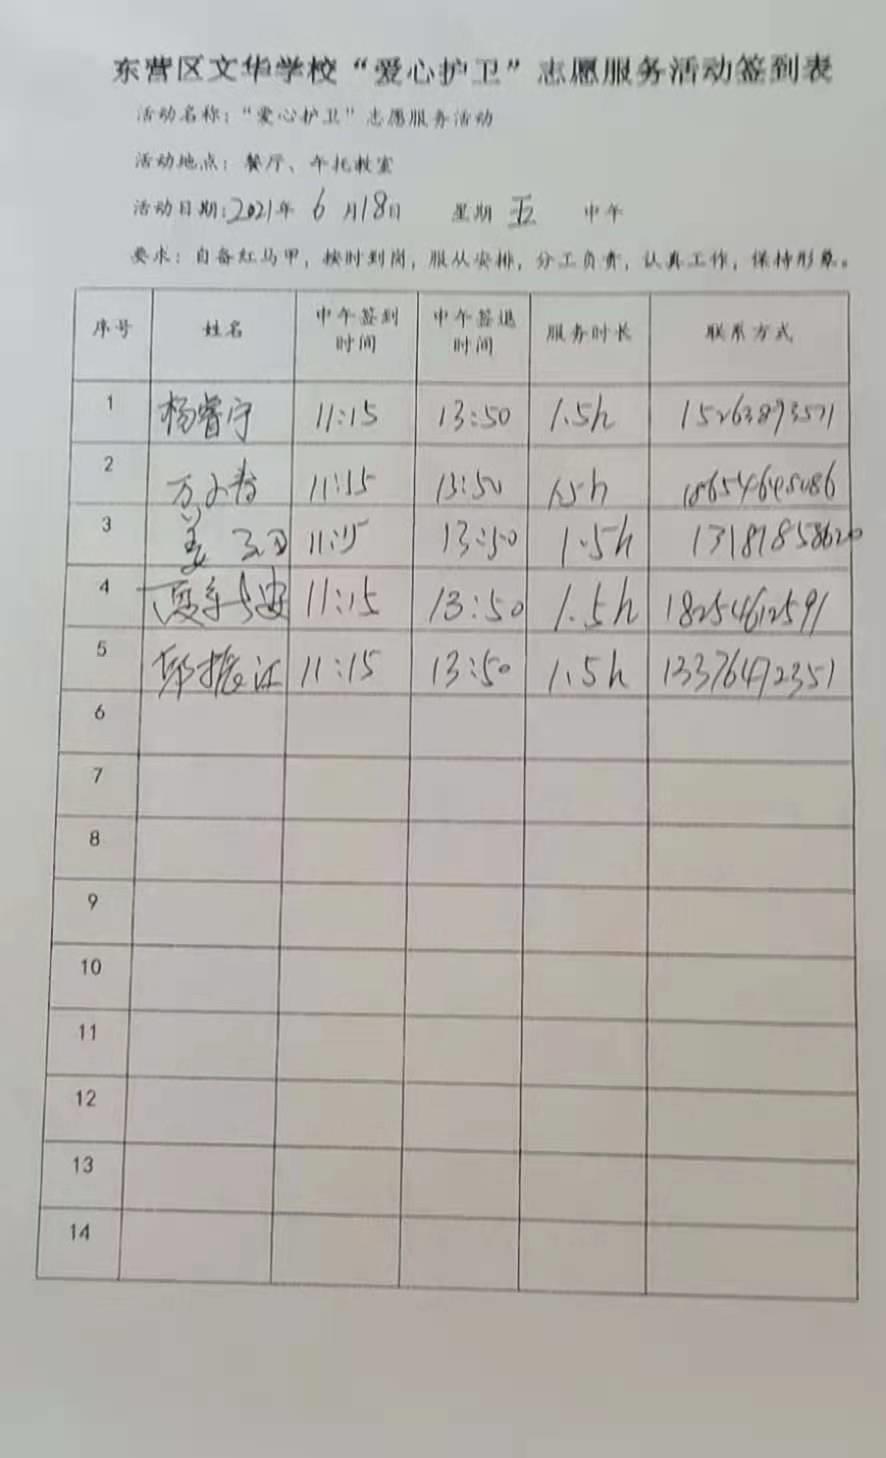 东营区文华学校“爱心护卫”志愿服务活动签到表
活动名称：“爱心护卫”志愿服务活动
活动地点：餐厅、午托教室
活动日期：2021年 6 月18日 星期 五 中午
要求：自备红马甲，按时到岗，服从安排，分工负责，认真工作，保持形象。
序号 姓名 中午签到时间 中午签退时间 服务时长 联系方式
1 杨睿宁 11:15 13:50 1.5h 15263893571
2 11:15 13:50 1.5h 18654645086
3 姜 11:15 13:50 1.5h 13181858620
4 11:15 13:50 1.5h 18254612591
5 11:15 13:50 1.5h 13376472351
6
7
8
9
10
11
12
13
14